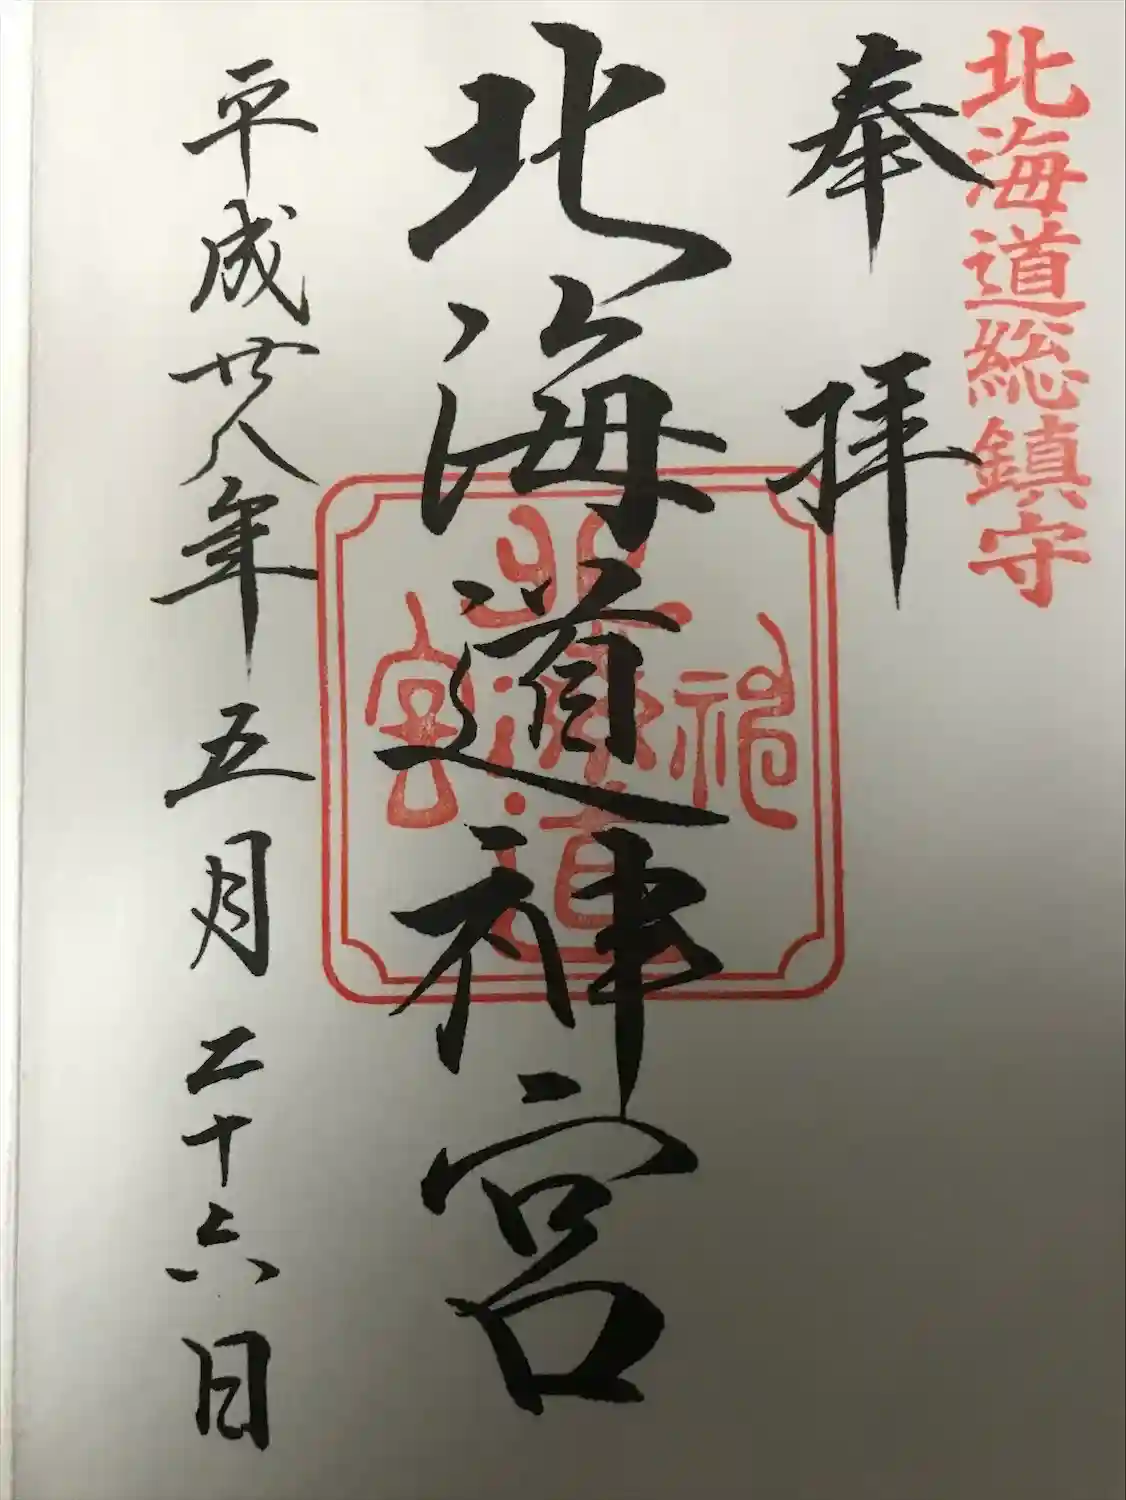 北海道総鎮守
奉拝
北海道神宮
北海道神宮
平成廿八年五月二十六日